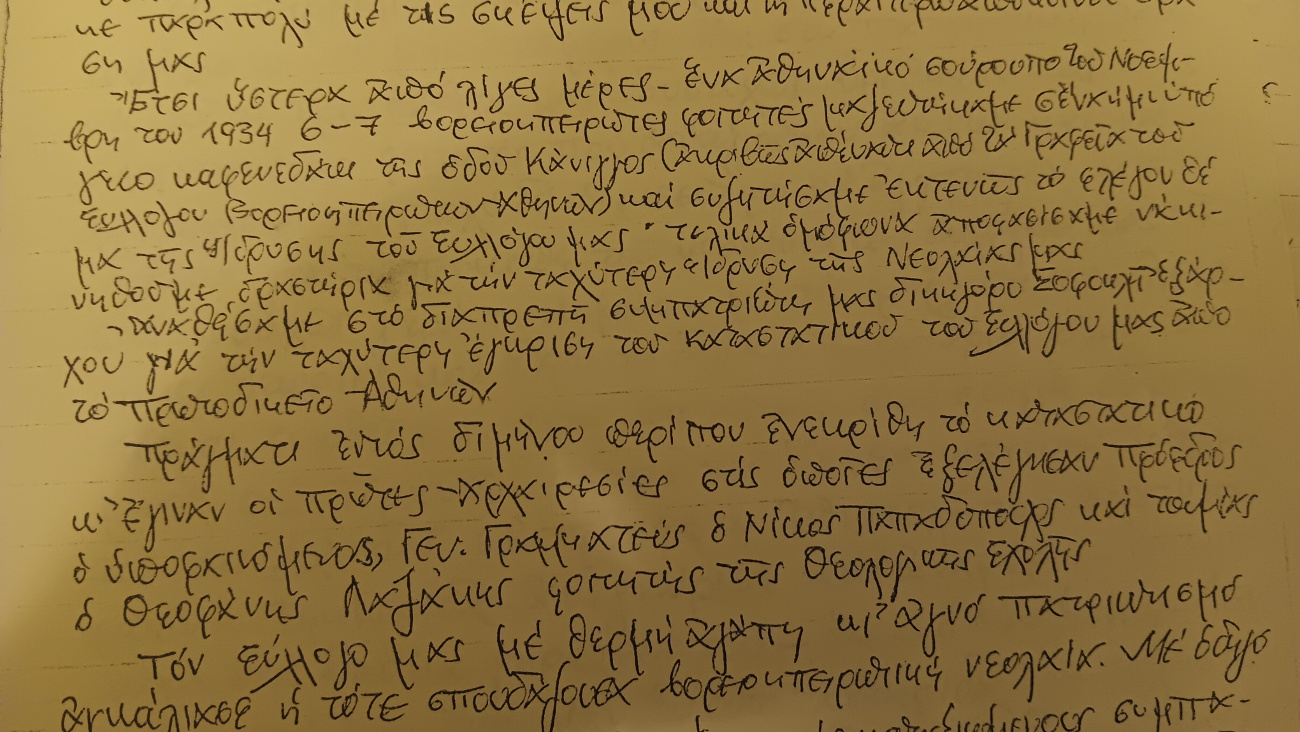 κε παρά πολύ μέ τις σκέψεις μου και
ση μας
Ἔτσι ὕστερα ἀπό λίγες μέρες - ἕνα ἀθηναίικο σούρουπο τοῦ Νοεμ-
βρη του 1934 6-7 βορειοηπειρῶτες φοιτητές μαζευτήκαμε σ' ἕνα ἡμιυπό
γειο καφενεδάκι τῆς ὁδοῦ Κάνιγγος (ἀκριβῶς ἀπέναντι ἀπό τά Γραφεῖα τοῦ
Συλλόγου Βορειοηπειρωτῶν Ἀθηνῶν) καί συζητήσαμε ἐκτενῶς τό
μα τῆς ἵδρυσης τοῦ Συλλόγου μας · τελικά ὁμόφωνα ἀποφασίσαμε νά κι-
νηθοῦμε δραστήρια γιά τήν ταχύτερη ἵδρυση τῆς Νεολαίας μας
Ἀναθέσαμε στό διαπρεπῆ συμπατριώτη μας δικηγόρο Σοφοκλῆ Ἐξάρ-
χου γιά τήν ταχύτερη ἔγκριση του καταστατικοῦ του Συλλόγου μας ἀπό
τό Πρωτοδικεῖο Ἀθηνῶν
Πράγματι ἐντός διμήνου περίπου ἐνεκρίθη τό καταστατικό
κι' ἔγιναν οἱ πρῶτες Ἀρχαιρεσίες στίς ὁποῖες ἐξελέγησαν Πρόεδρος
ὁ ὑποφαινόμενος, Γεν. Γραμματεύς ὁ Νίκος Παπαδόπουλος καί ταμίας
ὁ Θεοφάνης Λαζάκης φοιτητής τῆς Θεολογικῆς Σχολῆς
Τόν Σύλλογο μας μέ θερμή ἀγάπη κι' ἁγνό πατριωτισμό
ἀγκάλιασε ἡ τότε σπουδάζουσα βορειοηπειρωτική νεολαία. Μέ
συμπα-